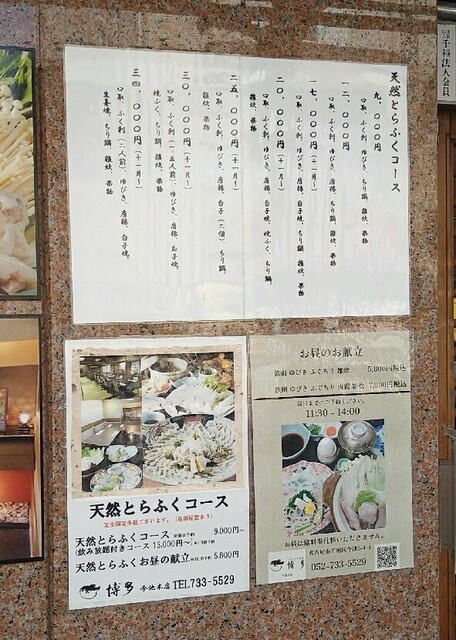 天然とらふくコース
九、〇〇〇円
口取、ふく刺、ちり鍋、雑炊、果物
一二、〇〇〇円
口取、ふく刺、ゆびき、唐揚、ちり鍋、雑炊、果物
一七、〇〇〇円（十一月〜）
口取、ふく刺、ゆびき、唐揚、ちり鍋、雑炊、果物
二〇、〇〇〇円（十一月〜）
口取、ふく刺、ゆびき、唐揚、白子焼、焼ふく、ちり鍋、
雑炊、果物
二五、〇〇〇円（十一月〜）
口取、ふく刺、ゆびき、唐揚、白子（二個）、ちり鍋、
雑炊、果物
三〇、〇〇〇円（十一月〜）
口取、ふく刺（一・五人前）、ゆびき、唐揚、白子焼、
焼ふく、ちり鍋、雑炊、果物
三四、〇〇〇円（十一月〜）
口取、ふく刺（二人前）、ゆびき、唐揚、白子焼、
生姜焼、ちり鍋、雑炊、果物
天然とらふくコース
完全個室多数ございます。
天然とらふくコース 9,000円〜
(飲み放題付きコース 15,000円〜
天然とらふくお昼の献立 5,800円
博多 今池本店 TEL733-5529
お昼のお献立
鉄刺 ゆびき ふぐちり 雑炊 5,800円税込
鉄刺 ゆびき ふぐちり 唐揚 雑炊 7,800円税込
前日までにご予約ください。
11:30 - 14:00
お昼は席料奉仕料いただきません。
名古屋市千種区今池5-4-4
博多 052-733-5529
千種法人会員